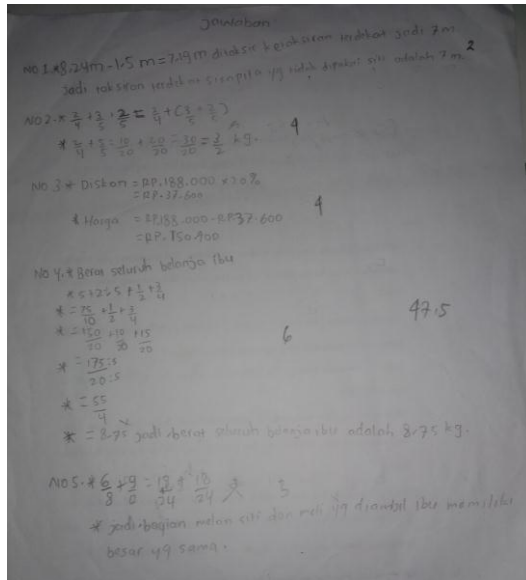 Jawaban
NO 1.*8,24m-1,5m=7,19m ditaksir ketaksiran terdekat jadi 7m
jadi taksiran terdekat sisa pita yg tidak dipakai siti adalah 7m. 2
NO2.*
* = 30/20 = 3/2 kg. 4
NO 3 * Diskon = RP.188.000 x 20%
= RP.37.600
* Harga = RP.188.000-RP.37.600 4
= RP.150.400
NO 4.* Berat seluruh belanja ibu
+ 1/2 + 3/4
* = 75/10 + 1/2 + 3/4 47,5
* = 150/20 + 10/20 + 15/20 6
* = 175:5/20:5
* = 55/4
* = 8,75 jadi berat seluruh belanja ibu adalah 8,75 kg.
NO 5.* 6/8 = 18/24 18/24 3
* jadi bagian melon siti dan meli yg diambil ibu memiliki
besar yg sama.